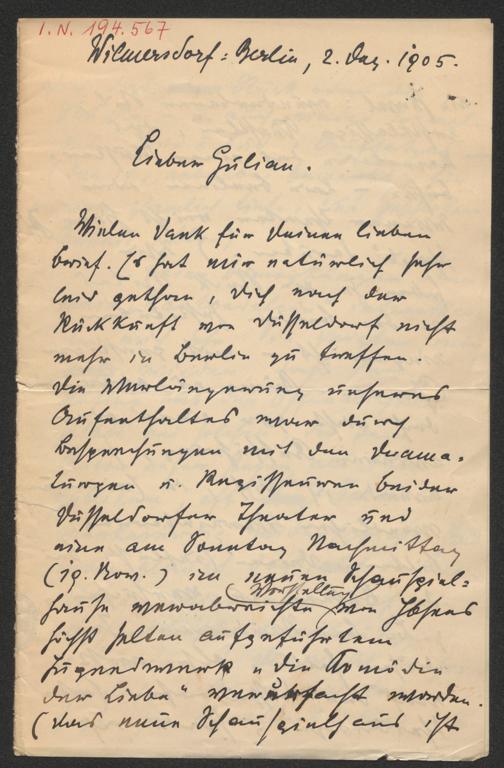 I.N. 194.567
Wilmersdorf=Berlin, 2. Dez. 1905.
Lieber Gulian.
Vielen Dank für Deinen lieben
Brief. Es hat mir natürlich sehr
leid gethan, Dich nach der
Rückkunft von Düsseldorf nicht
mehr in Berlin zu treffen.
Die Verlängerung unseres
Aufenthaltes war durch
Besprechungen mit den Drama=
turgen u. Regisseuren beider
Düsseldorfer Theater und
eine am Sonntag Nachmittag
(19. Nov.) im neuen Schauspiel=
Vorstellung
hause verabreichte von Ibsens
höchst selten aufgeführtem
Jugendwerk „die Komödie
der Liebe" verursacht worden.
(Das neue Schauspielhaus ist